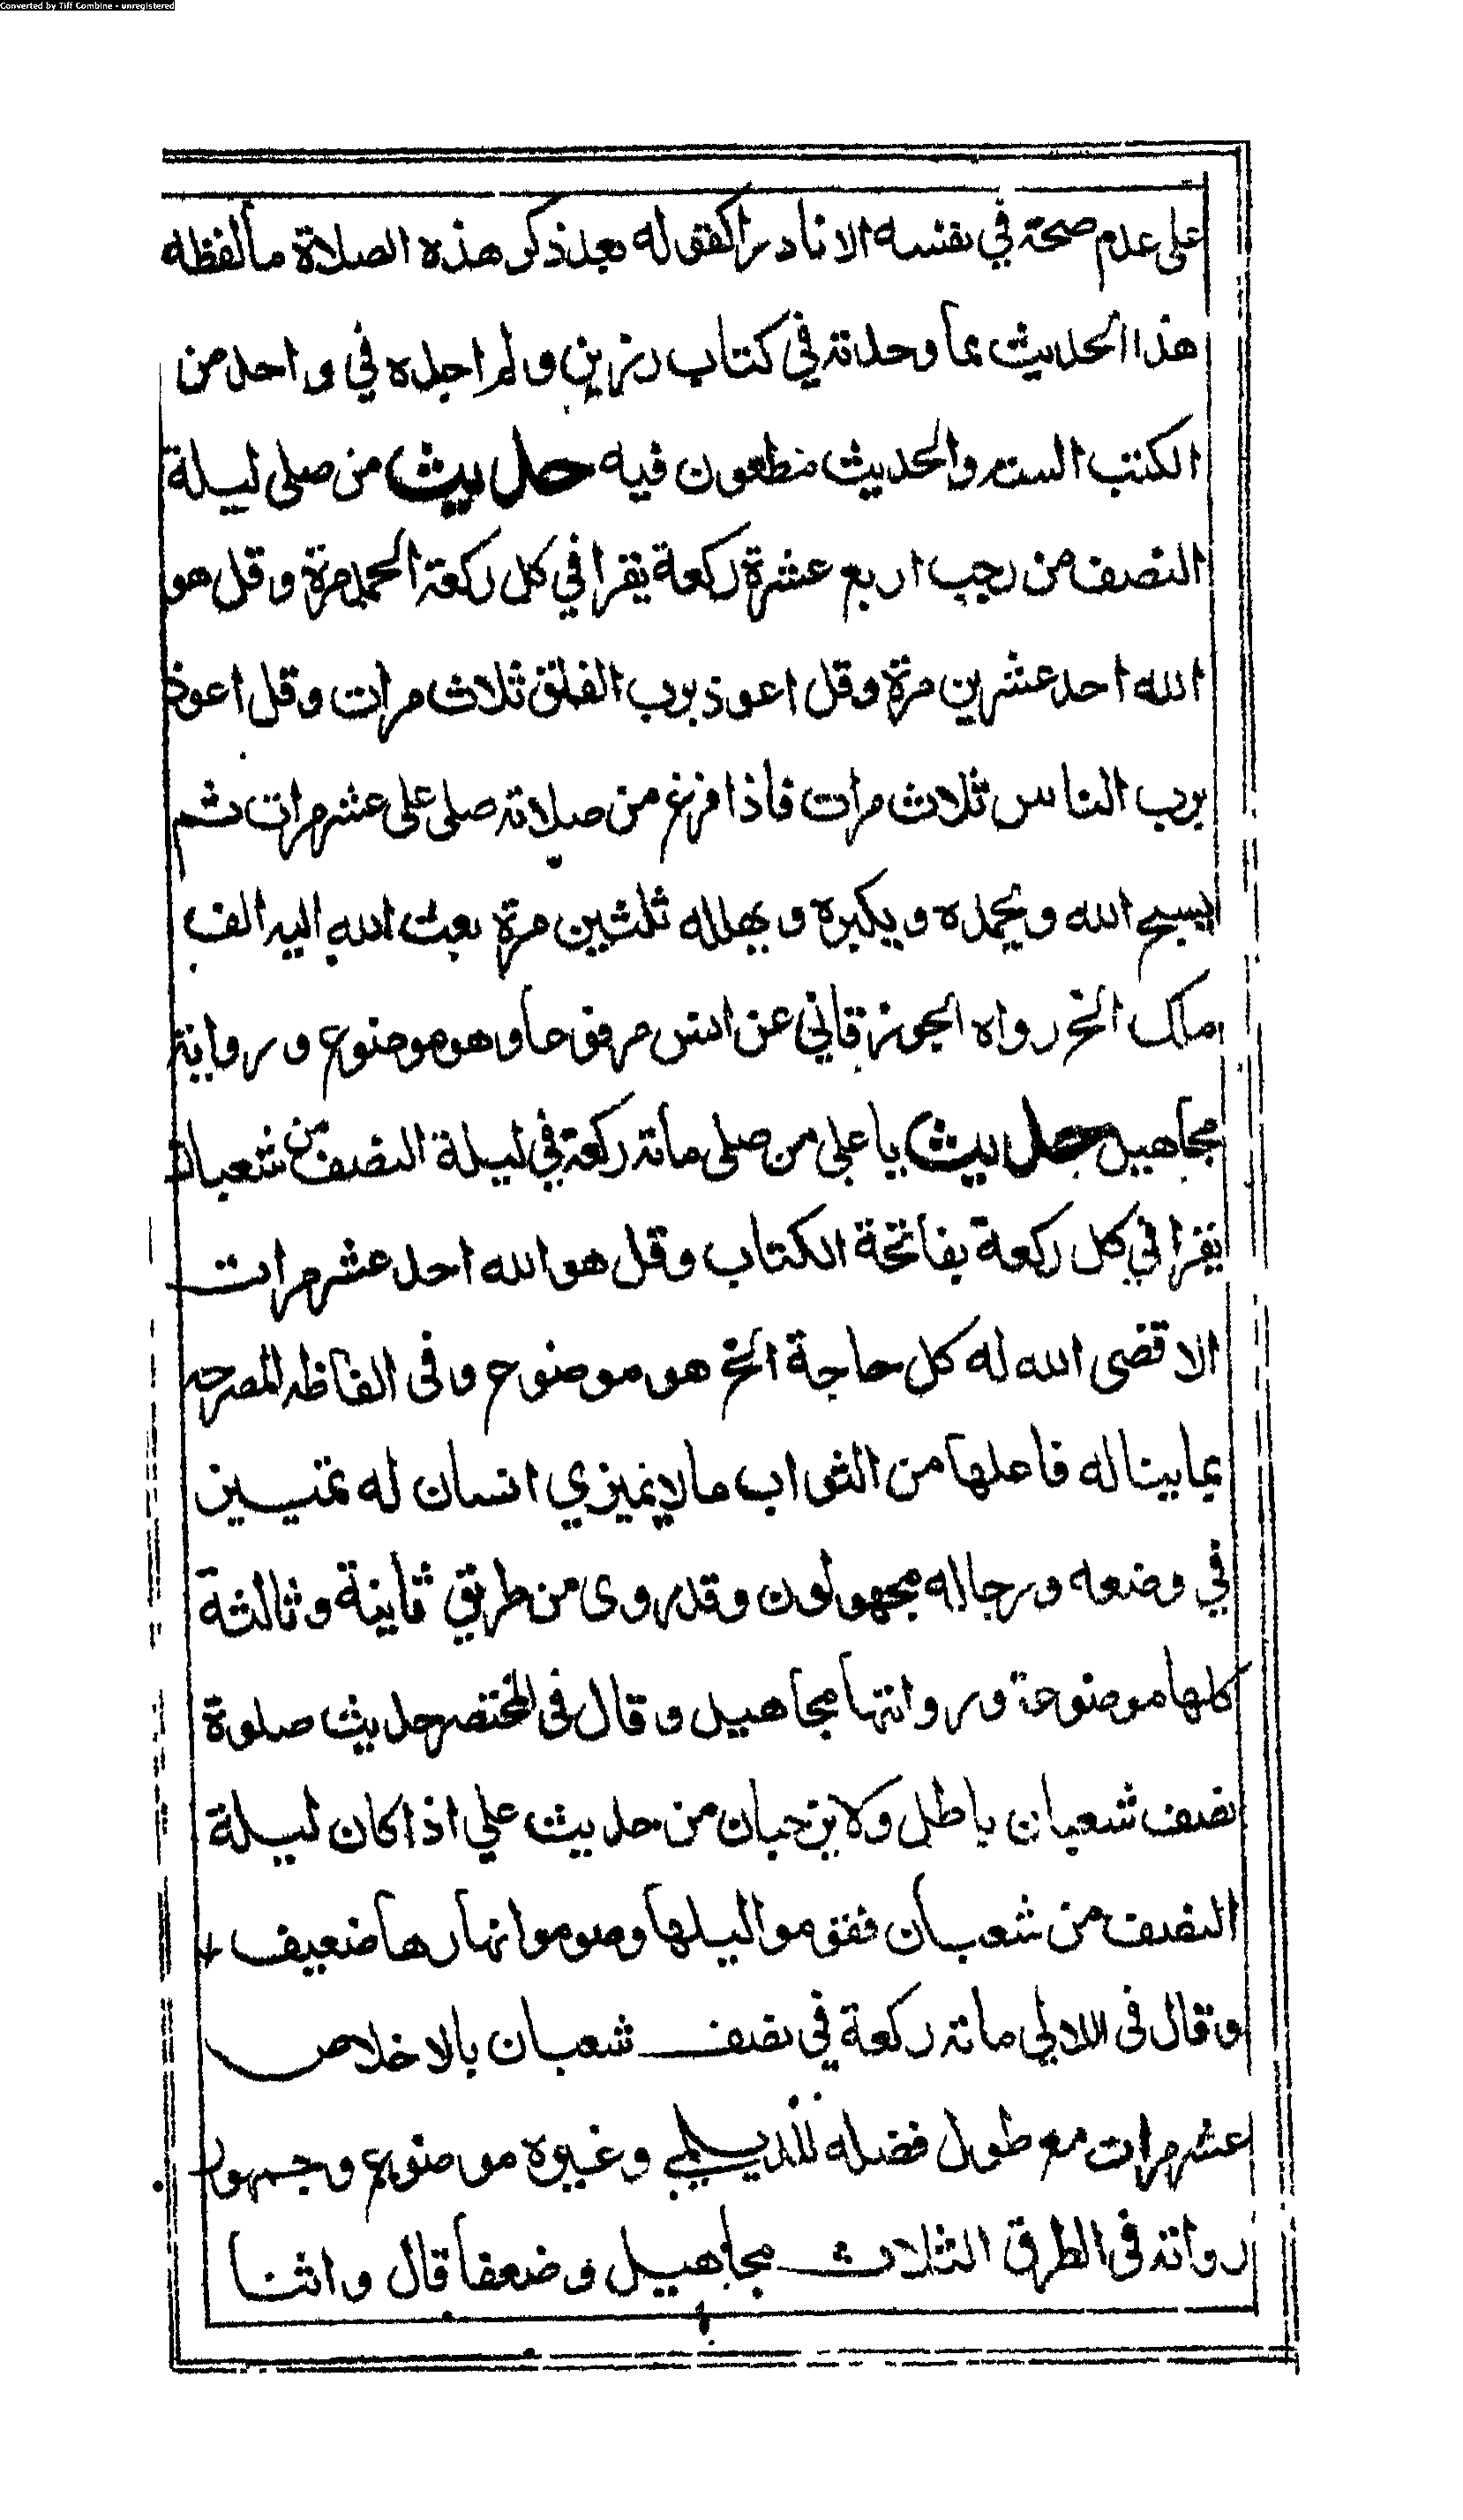 Converted by Tiff Combine - unregistered
على عدم صحته في نفسه الا نادرا كقوله بعد ذكر هذه الصلاة ما لفظه
هذا الحديث مما وجدته في كتاب رزين ولم اجده في واحد من
الكتب الستة والحديث مطعون فيه حديث من صلى ليلة
النصف من رجب اربع عشرة ركعة يقرا في كل ركعة الحمد مرة وقل هو
الله احد عشرين مرة وقل اعوذ برب الفلق ثلاث مرات وقل اعوذ
برب الناس ثلاث مرات فاذا فرغ من صلاته صلى على عشر مرات ثم
يسبح الله ويحمده ويكبره ويهلله ثلثين مرة بعث الله اليه الف
ملك الخ رواه الجوزقاني عن انس مرفوعا وهو موضوع ورواته
مجاهيل حديث يا على من صلى مائة ركعة في ليلة النصف من شعبان
يقرا في كل ركعة بفاتحة الكتاب وقل هو الله احد عشر مرات
الا قضى الله له كل حاجة الخ هو موضوع وفى الفاظه المصرحة
بما يناله فاعلها من الثواب ما لا يميزي انسان له تمييز
في وضعه ورجاله مجهولون وقد روى من طريق ثانية وثالثة
كلها موضوعة ورواتها مجاهيل وقال فى المختصر حديث صلوة
نصف شعبان باطل ولابن حبان من حديث علي اذا كان ليلة
النصف من شعبان فقوموا ليلها وصوموا نهارها ضعيف
وقال فى اللالي مائة ركعة في نصف شعبان بالاخلاص
عشر مرات مع طول فضله للديلمي وغيره موضوع وجمهور
رواته فى الطرق الثلاث مجاهيل وضعفا قال واثنا